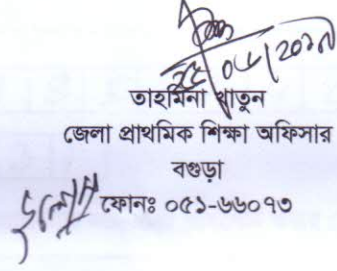 তাহমিনা খাতুন
জেলা প্রাথমিক শিক্ষা অফিসার
বগুড়া
ফোনঃ ০৫১-৬৬০৭৩